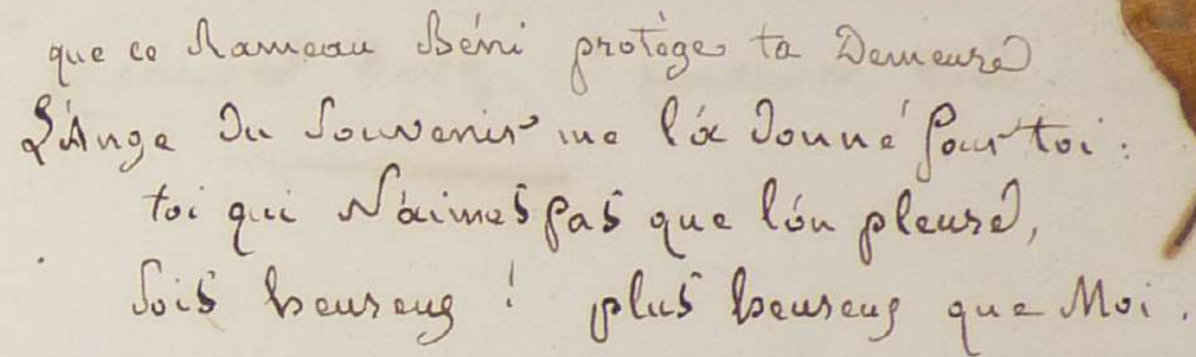 que ce Rameau Béni protège ta Demeure
L'Ange du Souvenir me l'a donné pour toi :
toi qui N'aimes pas que l'on pleure,
Sois heureux ! plus heureux que Moi .